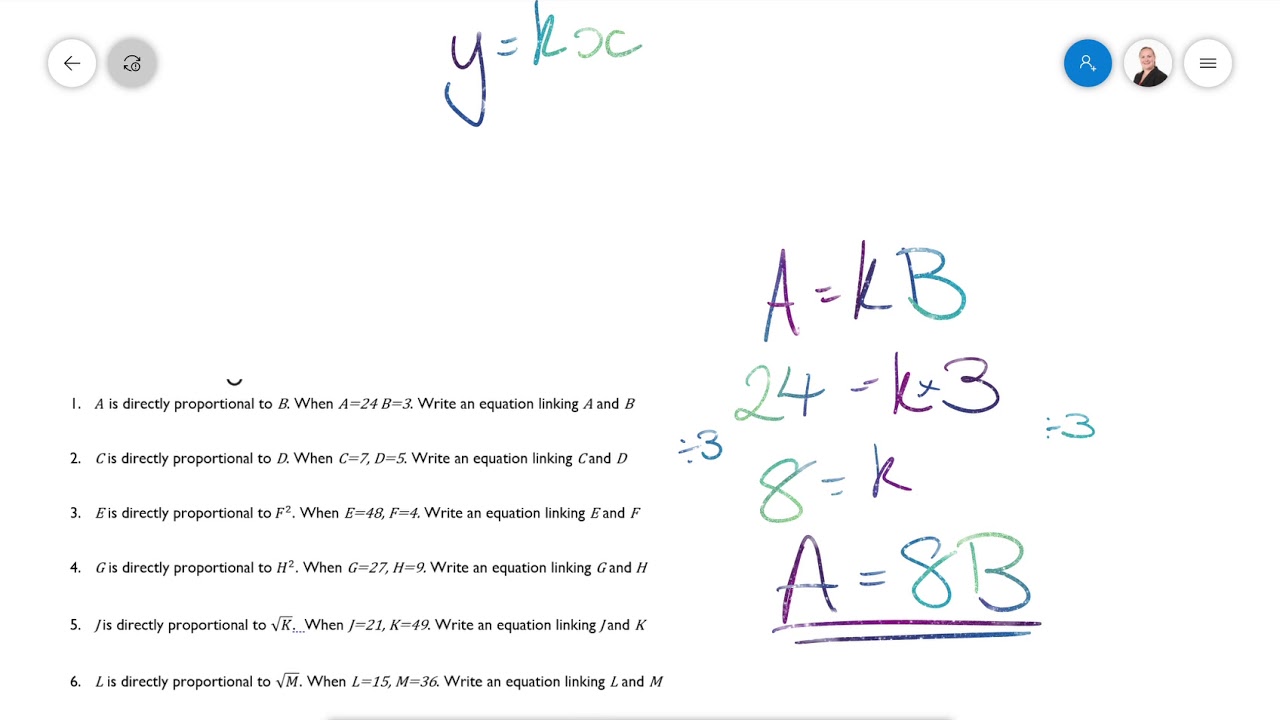 y=kx
A=kB
24=k×3
1. A is directly proportional to B. When A=24 B=3. Write an equation linking A and B
÷3 ÷3
2. C is directly proportional to D. When C=7, D=5. Write an equation linking C and D
8=k
3. E is directly proportional to F². When E=48, F=4. Write an equation linking E and F
4. G is directly proportional to H². When G=27, H=9. Write an equation linking G and H
A=8B
5. J is directly proportional to √K. When J=21, K=49. Write an equation linking J and K
6. L is directly proportional to √M. When L=15, M=36. Write an equation linking L and M